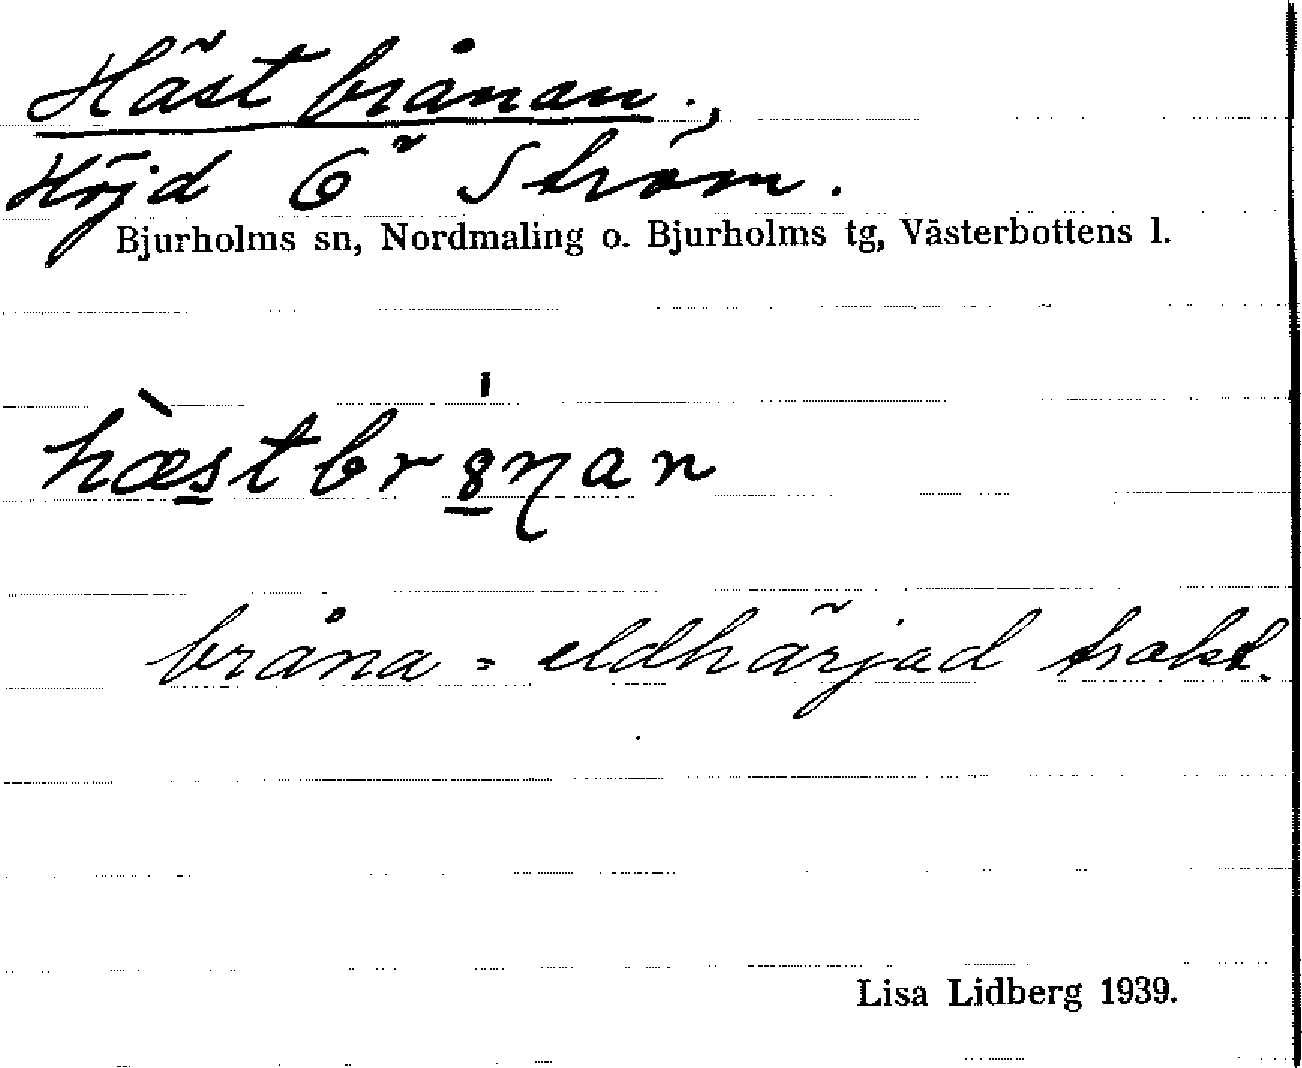 Hästbrånan.,
Höjd Ö Ström.
Bjurholms sn, Nordmaling o. Bjurholms tg, Västerbottens l.
hæstbrånan
bråna = eldhärjad trakt.
Lisa Lidberg 1939.